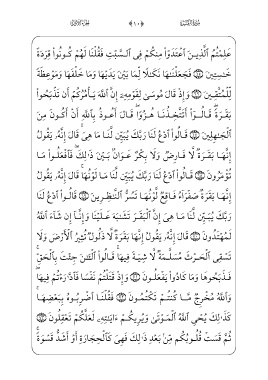 عَلِمْتُمُ ٱلَّذِينَ ٱعْتَدَوْا۟ مِنكُمْ فِى ٱلسَّبْتِ فَقُلْنَا لَهُمْ كُونُوا۟ قِرَدَةً
خَـٰسِـِٔينَ ۝ فَجَعَلْنَـٰهَا نَكَـٰلًا لِّمَا بَيْنَ يَدَيْهَا وَمَا خَلْفَهَا وَمَوْعِظَةً
لِّلْمُتَّقِينَ ۝ وَإِذْ قَالَ مُوسَىٰ لِقَوْمِهِۦٓ إِنَّ ٱللَّهَ يَأْمُرُكُمْ أَن تَذْبَحُوا۟
بَقَرَةً ۖ قَالُوٓا۟ أَتَتَّخِذُنَا هُزُوًا ۖ قَالَ أَعُوذُ بِٱللَّهِ أَنْ أَكُونَ مِنَ
ٱلْجَـٰهِلِينَ ۝ قَالُوا۟ ٱدْعُ لَنَا رَبَّكَ يُبَيِّن لَّنَا مَا هِىَ ۚ قَالَ إِنَّهُۥ يَقُولُ
إِنَّهَا بَقَرَةٌ لَّا فَارِضٌ وَلَا بِكْرٌ عَوَانٌۢ بَيْنَ ذَٰلِكَ ۖ فَٱفْعَلُوا۟ مَا
تُؤْمَرُونَ ۝ قَالُوا۟ ٱدْعُ لَنَا رَبَّكَ يُبَيِّن لَّنَا مَا لَوْنُهَا ۚ قَالَ إِنَّهُۥ يَقُولُ
إِنَّهَا بَقَرَةٌ صَفْرَآءُ فَاقِعٌ لَّوْنُهَا تَسُرُّ ٱلنَّـٰظِرِينَ ۝ قَالُوا۟ ٱدْعُ لَنَا
رَبَّكَ يُبَيِّن لَّنَا مَا هِىَ إِنَّ ٱلْبَقَرَ تَشَـٰبَهَ عَلَيْنَا وَإِنَّآ إِن شَآءَ ٱللَّهُ
لَمُهْتَدُونَ ۝ قَالَ إِنَّهُۥ يَقُولُ إِنَّهَا بَقَرَةٌ لَّا ذَلُولٌ تُثِيرُ ٱلْأَرْضَ وَلَا
تَسْقِى ٱلْحَرْثَ مُسَلَّمَةٌ لَّا شِيَةَ فِيهَا ۚ قَالُوا۟ ٱلْـَٔـٰنَ جِئْتَ بِٱلْحَقِّ ۚ
فَذَبَحُوهَا وَمَا كَادُوا۟ يَفْعَلُونَ ۝ وَإِذْ قَتَلْتُمْ نَفْسًا فَٱدَّٰرَْٰٔتُمْ فِيهَا ۖ
وَٱللَّهُ مُخْرِجٌ مَّا كُنتُمْ تَكْتُمُونَ ۝ فَقُلْنَا ٱضْرِبُوهُ بِبَعْضِهَا ۚ
كَذَٰلِكَ يُحْىِ ٱللَّهُ ٱلْمَوْتَىٰ وَيُرِيكُمْ ءَايَـٰتِهِۦ لَعَلَّكُمْ تَعْقِلُونَ ۝
ثُمَّ قَسَتْ قُلُوبُكُم مِّنۢ بَعْدِ ذَٰلِكَ فَهِىَ كَٱلْحِجَارَةِ أَوْ أَشَدُّ قَسْوَةً ۚ